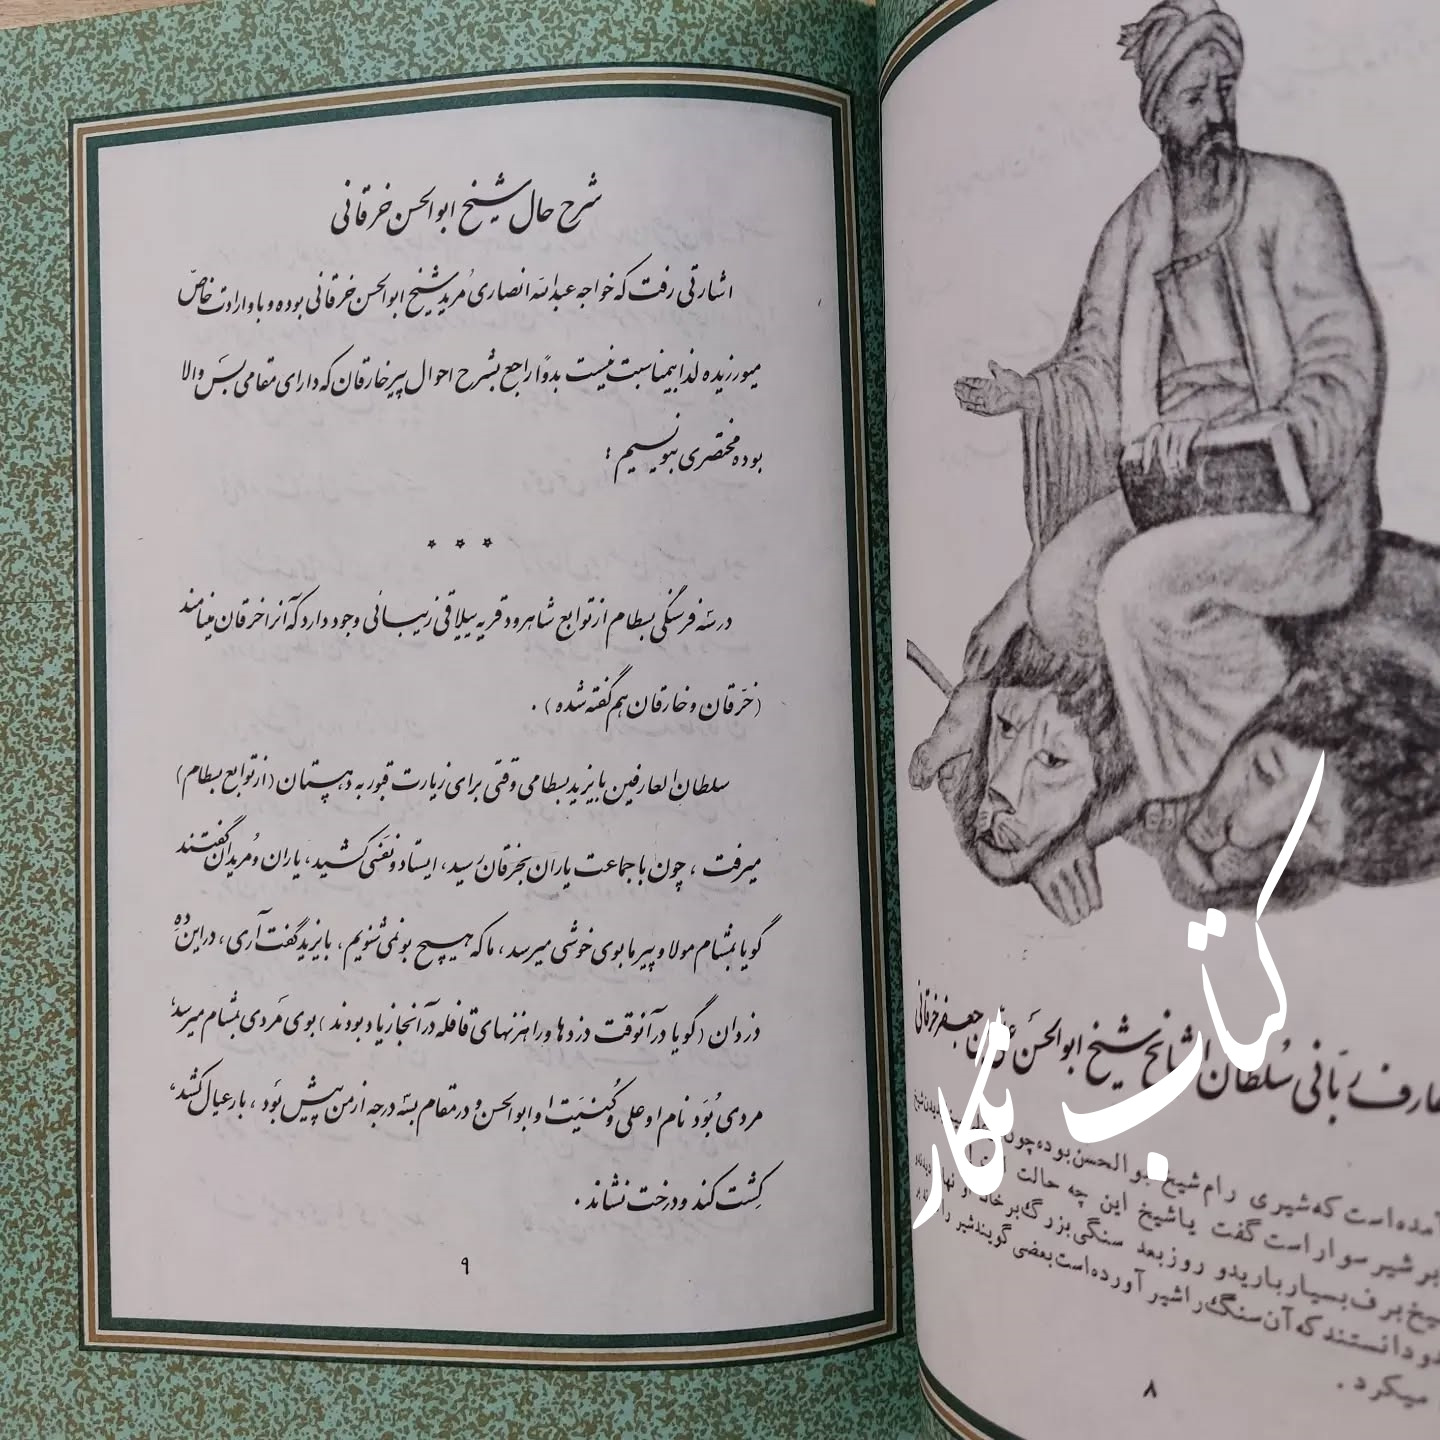 عارف ربّانی سُلطان المشایخ شیخ ابوالحَسَن علی بن جعفر خرقانی
آمده است که شیری رام شیخ ابوالحسن بوده چون
بر شیر سوار است گفت یا شیخ این چه حالت است
شیخ برف بسیار بارید و روز بعد سنگی بزرگ بر خانه او نهاده
دانستند که آن سنگ را شیر آورده است بعضی گویند شیر را
میکرد.
۸
کتاب نگار
شرح حال شیخ ابوالحسن خرقانی
اشارتی رفت که خواجه عبدالله انصاری مُرید شیخ ابوالحسن خرقانی بوده و باو ارادت خاصّ
میورزیده لذا بیمناسبت نیست بدواً راجع بشرح احوال پیر خارقان که دارای مقامی بَس والا
بوده مختصری بنویسیم :
* * *
در سَه فرسنگی بسطام از توابع شاهرود قریه ییلاقی زیبائی وجود دارد که آنرا خرقان مینامند
(خَرَقان و خارقان هم گفته شده) .
سلطان العارفین بایزید بسطامی وقتی برای زیارت قبور به دهستان (از توابع بسطام)
میرفت ، چون با جماعت یاران بخَرَقان رسید ، ایستاد و نفَسی کشید ، یاران و مُریدان گفتند
گویا بمشام مولا و پیر ما بوی خوشی میرسد ، ما که هیچ بو نمی شنویم ، بایزید گفت آری ، در این دِهِ
دزدان (گویا در آنوقت دزدها و راهزنهای قافله در آنجا زیاد بودند) بوی مَردی بمشام میرسد ،
مردی بُوَد نام او علی و کُنیَت او ابوالحسن و در مقام بسَه درجه از من پیش بوَد ، بار عیال کشد ،
کِشت کند و درخت نشاند .
۹